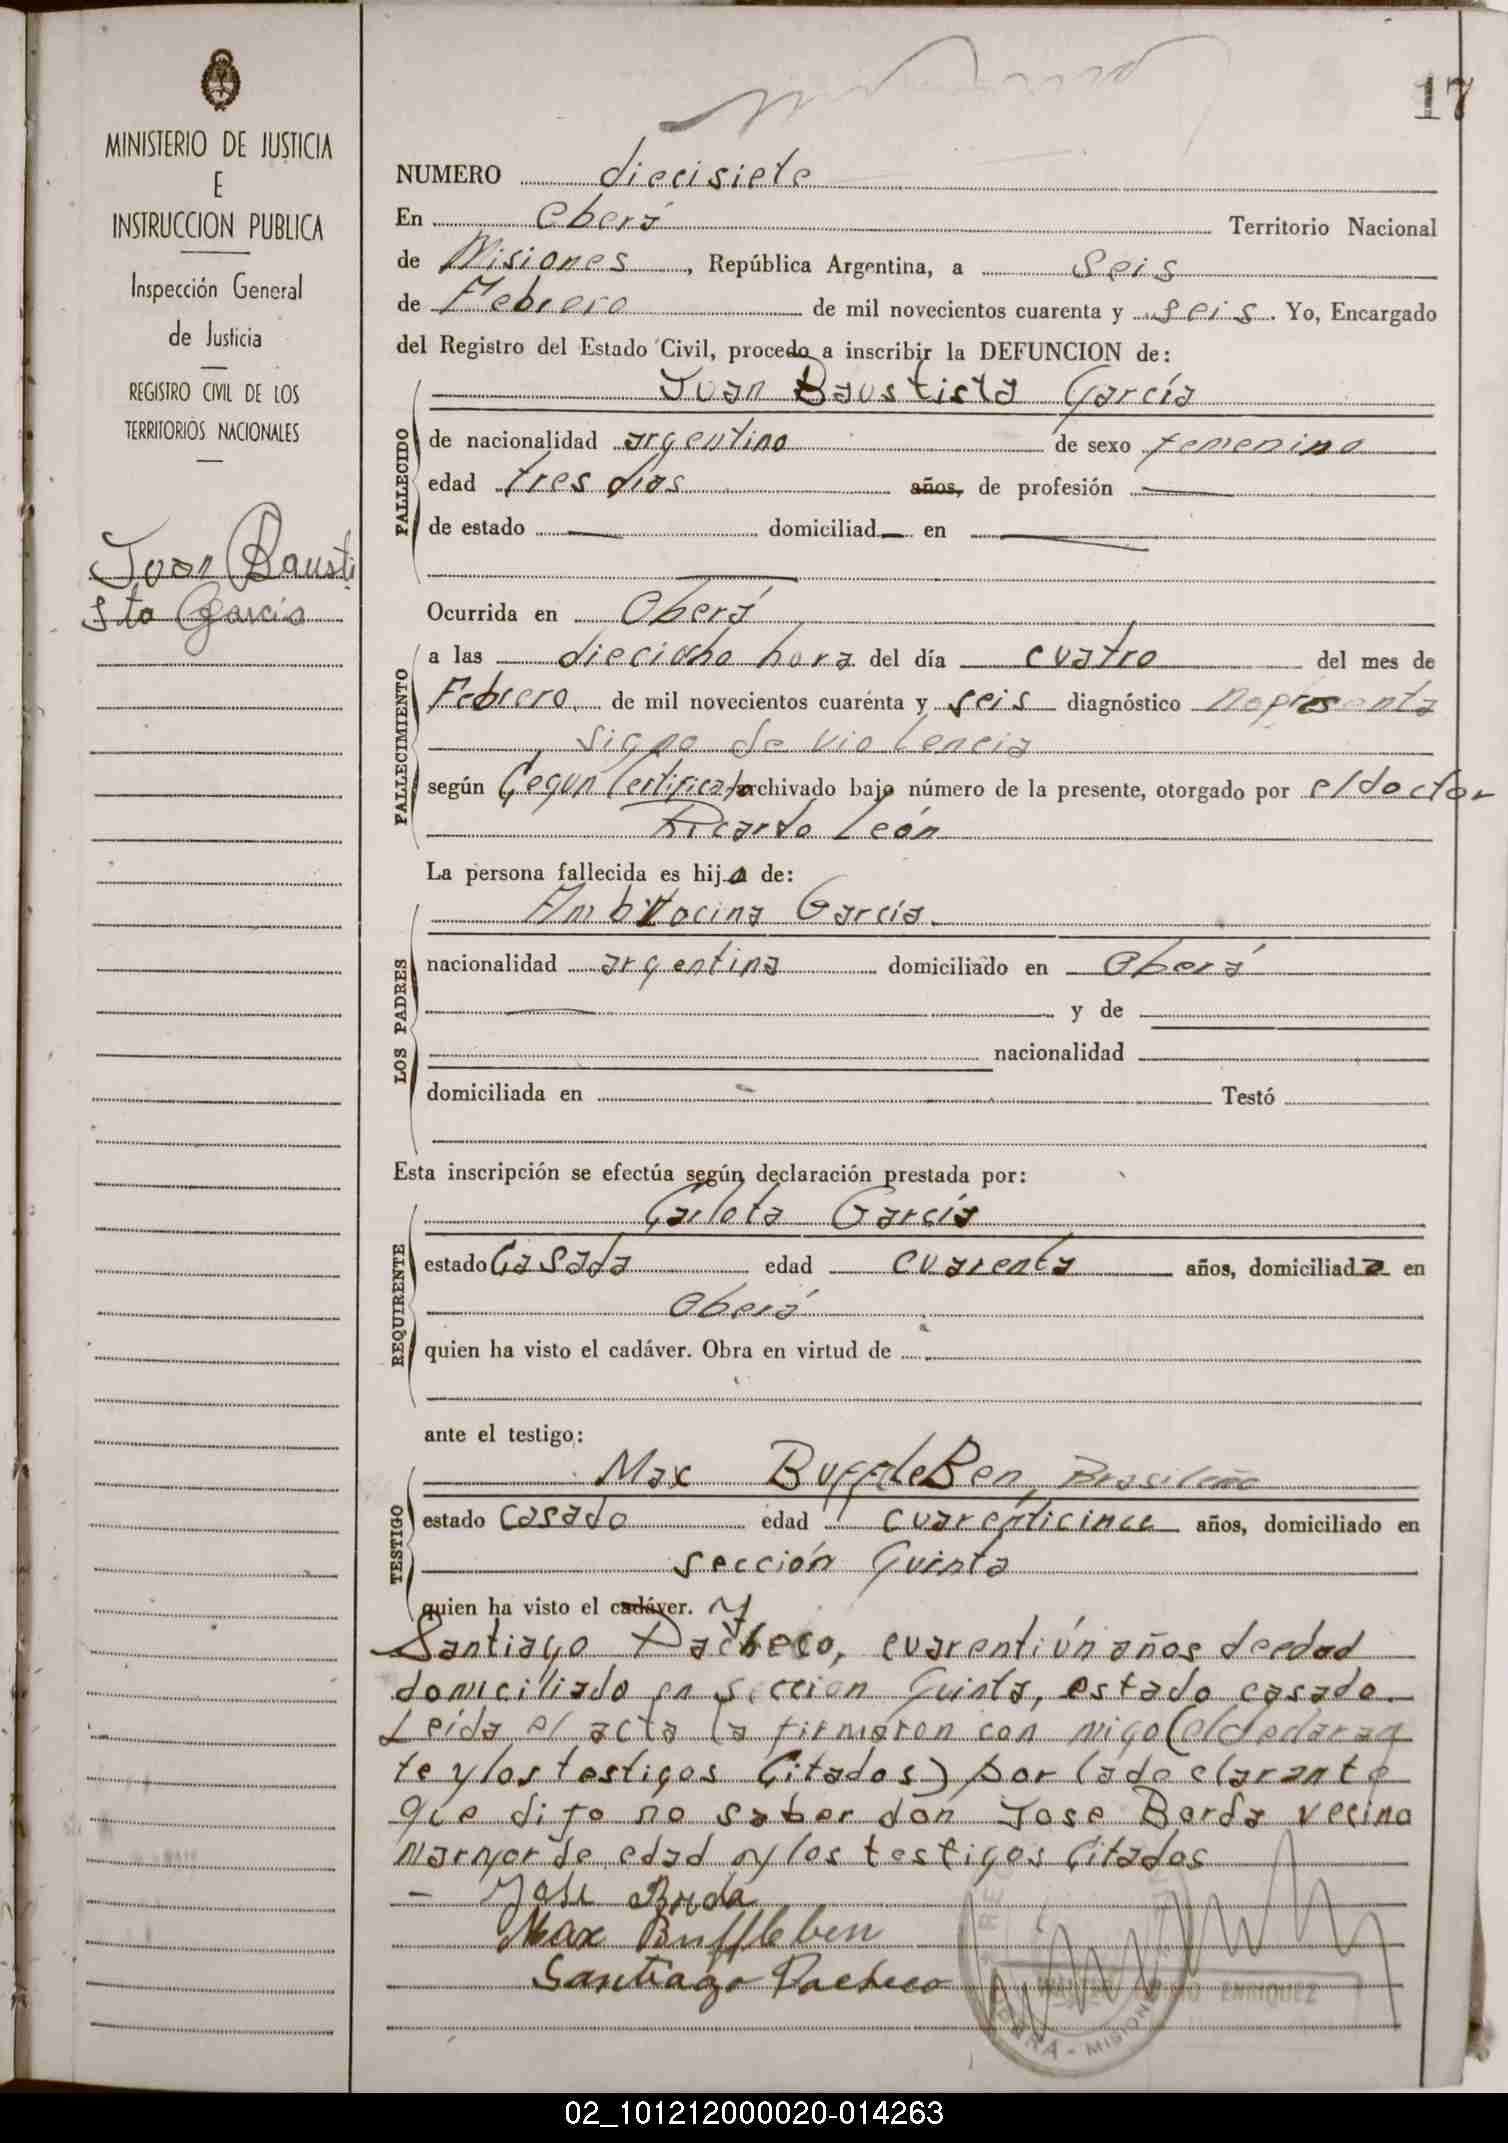 17
MINISTERIO DE JUSTICIA
E
INSTRUCCION PUBLICA
Inspección General
de Justicia
REGISTRO CIVIL DE LOS
TERRITORIOS NACIONALES
Juan Bausti
sta Garcia
NUMERO diecisiete
En Oberá Territorio Nacional
de Misiones, República Argentina, a Seis
de Febrero de mil novecientos cuarenta y seis. Yo, Encargado
del Registro del Estado Civil, procedo a inscribir la DEFUNCION de:
Juan Baustista García
FALLECIDO
de nacionalidad argentino de sexo femenino
edad tres dias años, de profesión
de estado domiciliad en
Ocurrida en Oberá
FALLECIMIENTO
a las dieciocho hora del día cuatro del mes de
Febrero de mil novecientos cuarenta y seis diagnóstico No presenta
signo de violencia
según Segun Certificato archivado bajo número de la presente, otorgado por el doctor
Ricardo León
La persona fallecida es hijo de:
LOS PADRES
García.
nacionalidad argentina domiciliado en Oberá
y de
nacionalidad
domiciliada en Testó
Esta inscripción se efectúa según declaración prestada por:
REQUIRENTE
Carlota García
estado Casada edad cuarenta años, domiciliada en
Oberá
quien ha visto el cadáver. Obra en virtud de
ante el testigo:
TESTIGO
Max BuffleBen, Brasileño
estado casado edad cuarenticinco años, domiciliado en
sección Quinta
quien ha visto el cadáver. y
Santiago Pacheco, cuarentiún años de edad
domiciliado en seccion Quinta, estado casado.
Leída el acta la firmaron con migo (el declaran
te y los testigos Citados) por la declarante
que dijo no saber don Jose Borda vecino
maryor de edad y los testigos Citados
- José Borda
Max Buffleben
Santiago Pacheco
ENRIQUEZ
OBERA - MISIONES
02_101212000020-014263